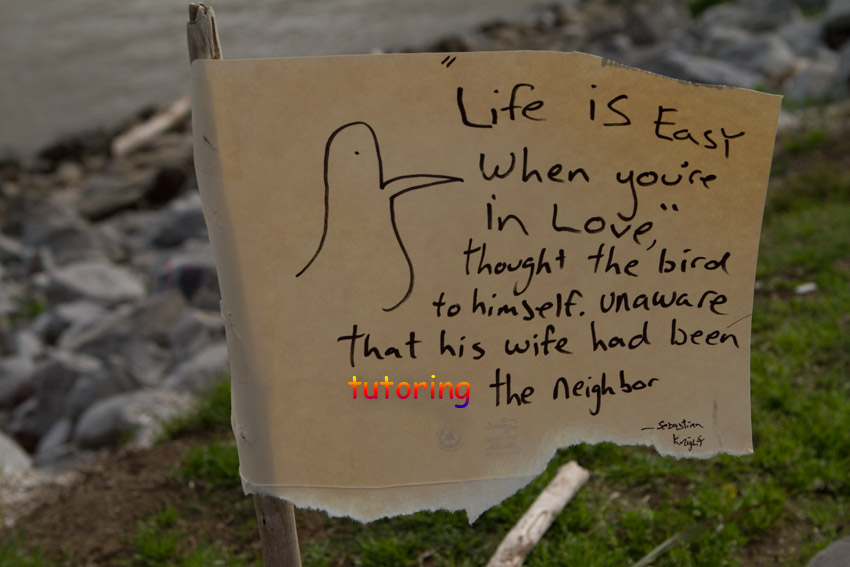 "Life is Easy
When you're
in Love,"
thought the bird
to himself. unaware
that his wife had been
tutoring the neighbor
- Sebastian
Knight